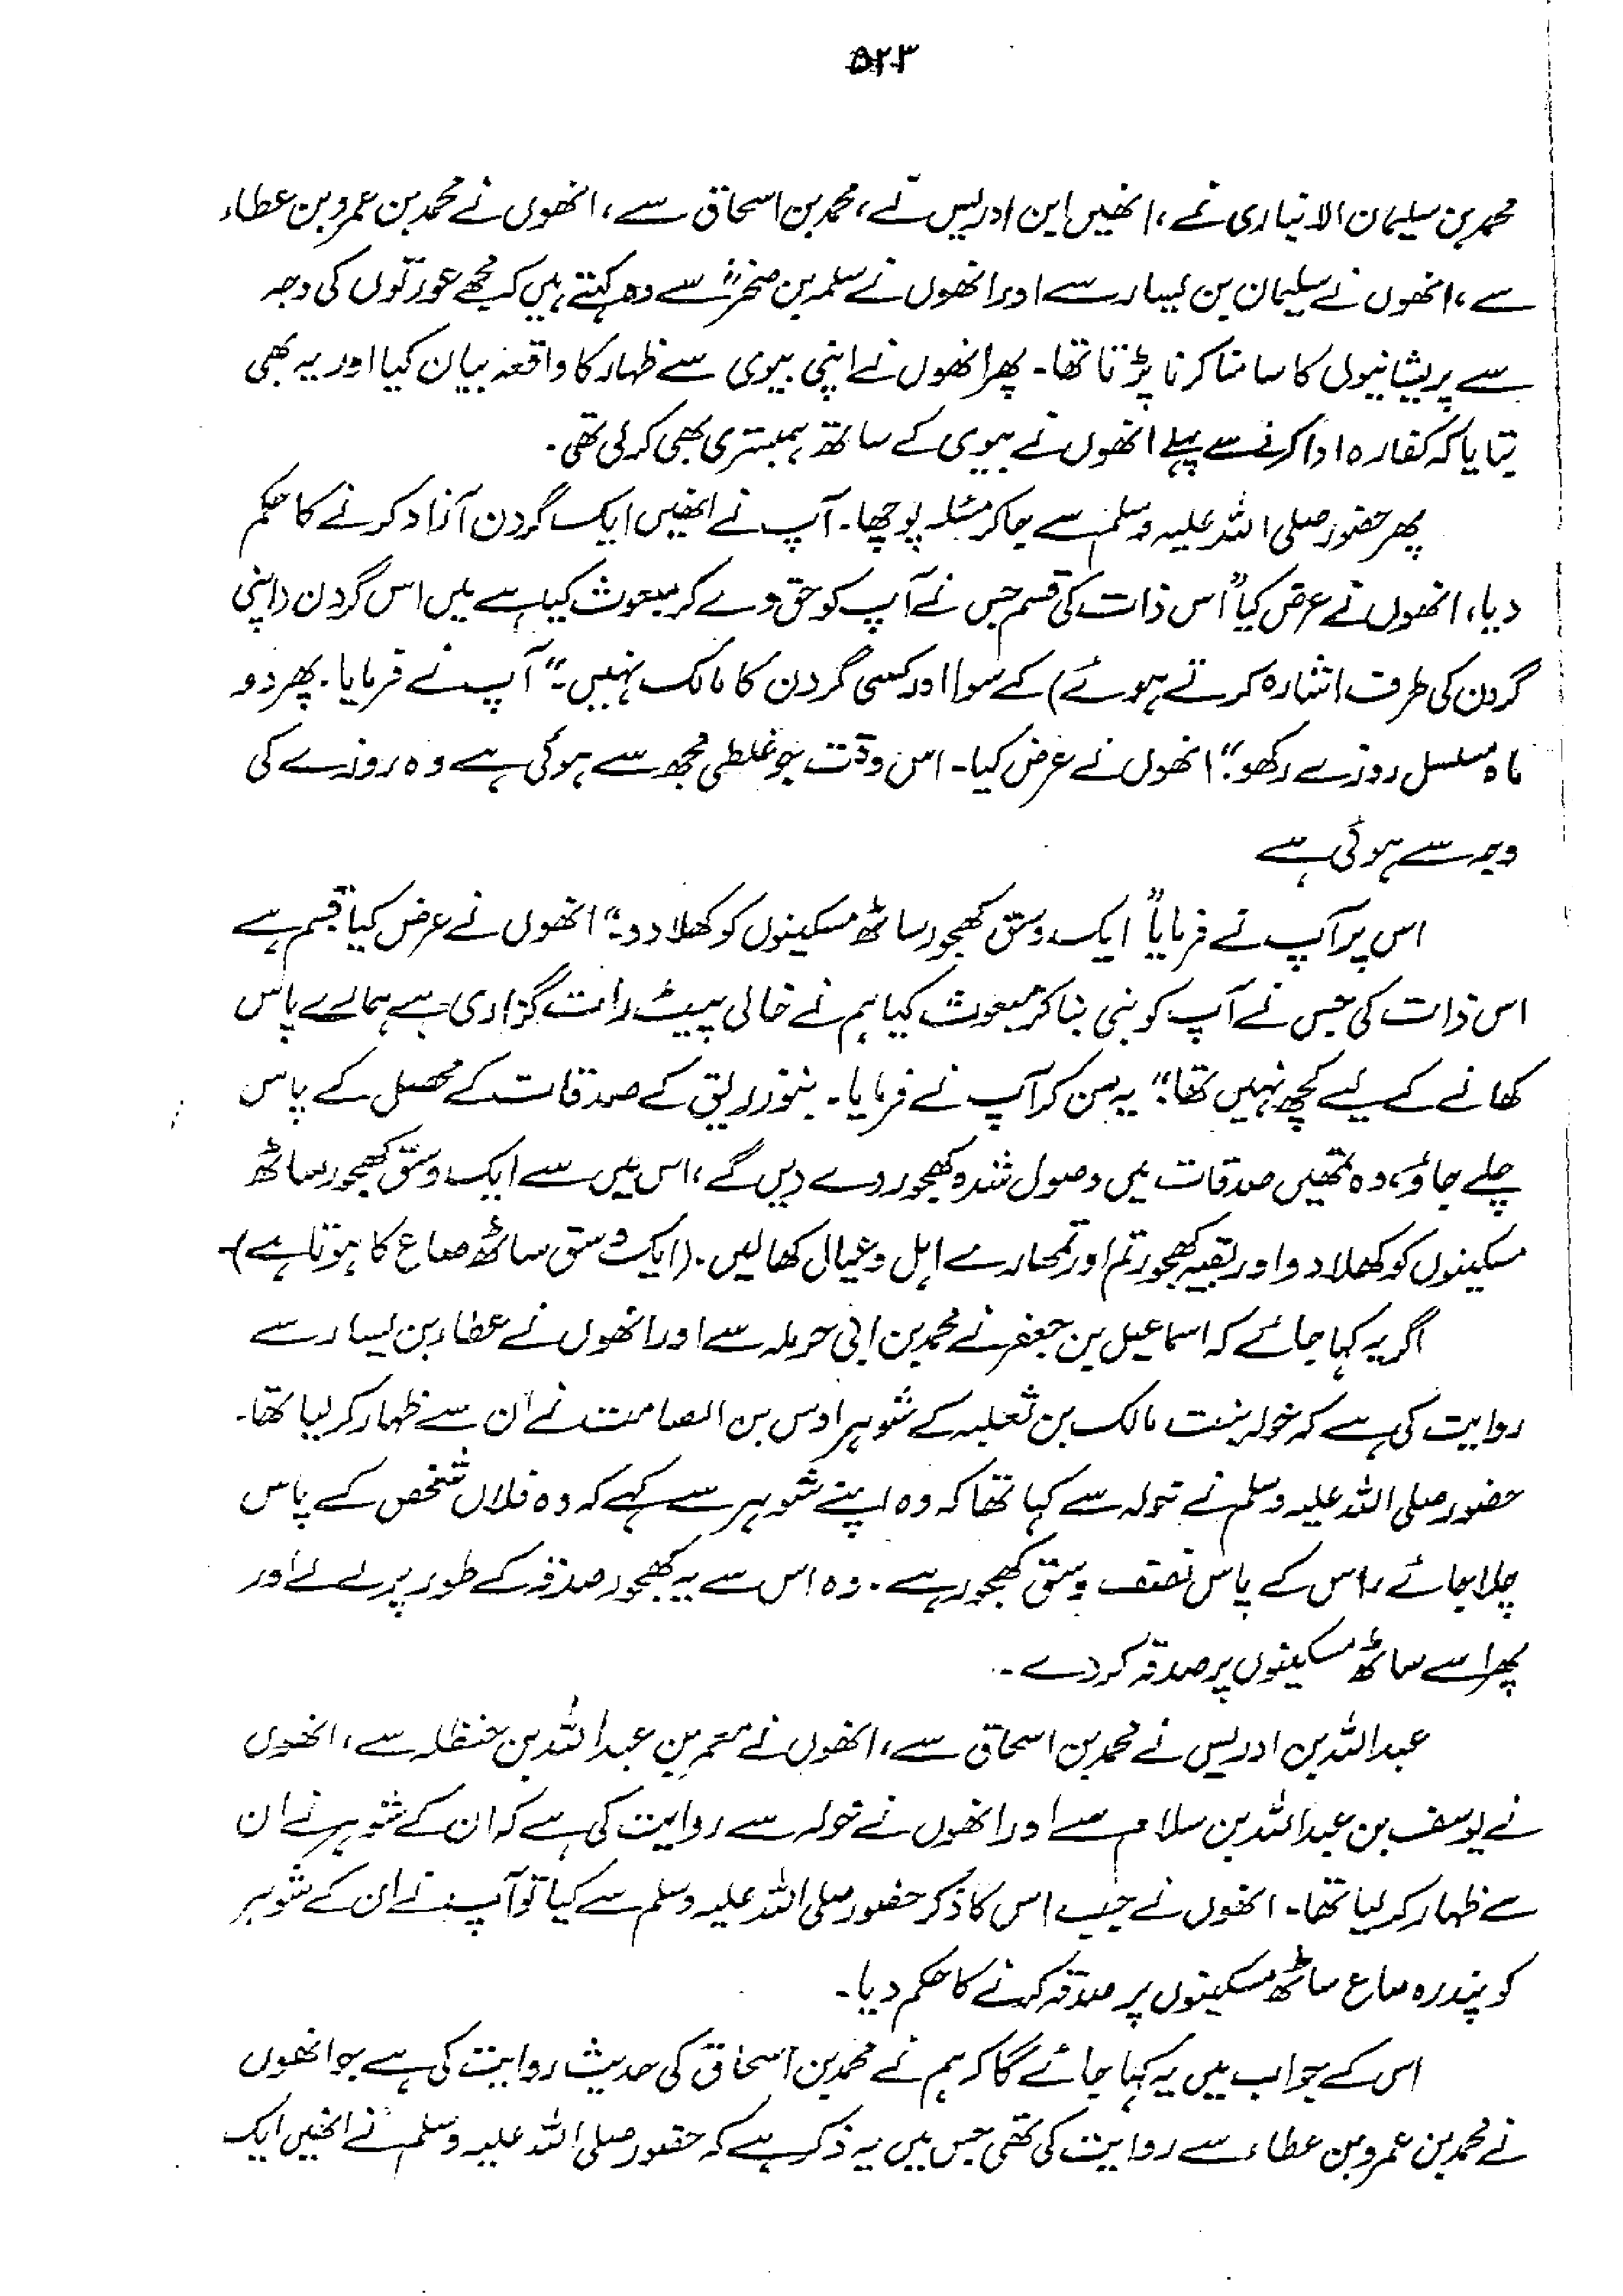 ۵۲۳
محمد بن سلیمان الانباری نے، انھیں ابن ادریس نے، محمد بن اسحاق سے، انھوں نے محمد بن عمرو بن عطاء
سے، انھوں نے سلیمان بن یسار سے اور انھوں نے سلمہ بن صخرؓ سے وہ کہتے ہیں کہ مجھے عورتوں کی وجہ
سے پریشانیوں کا سامنا کرنا پڑتا تھا۔ پھر انھوں نے اپنی بیوی سے ظہار کا واقعہ بیان کیا اور یہ بھی
بتایا کہ کفارہ ادا کرنے سے پہلے انھوں نے بیوی کے ساتھ ہمبستری بھی کر لی تھی۔
پھر حضور صلی اللہ علیہ وسلم سے جا کر مسئلہ پوچھا۔ آپ نے انھیں ایک گردن آزاد کرنے کا حکم
دیا، انھوں نے عرض کیا "اس ذات کی قسم جس نے آپ کو حق دے کر مبعوث کیا ہے میں اس گردن (اپنی
گردن کی طرف اشارہ کرتے ہوئے) کے سوا اور کسی گردن کا مالک نہیں۔" آپ نے فرمایا۔ پھر دو
ماہ مسلسل روزے رکھو۔" انھوں نے عرض کیا۔ اس وقت جو غلطی مجھ سے ہوئی ہے وہ روزے کی
وجہ سے ہوئی ہے
اس پر آپ نے فرمایا "ایک وسق کھجور ساٹھ مسکینوں کو کھلا دو۔" انھوں نے عرض کیا "قسم ہے
اس ذات کی جس نے آپ کو نبی بنا کر مبعوث کیا ہم نے خالی پیٹ رات گزاری ہے ہمارے پاس
کھانے کے لیے کچھ نہیں تھا۔" یہ سن کر آپ نے فرمایا۔ بنو زریق کے صدقات کے محصل کے پاس
چلے جاؤ، وہ تمھیں صدقات میں وصول شدہ کھجور دے دیں گے، اس میں سے ایک وسق کھجور ساٹھ
مسکینوں کو کھلا دو اور بقیہ کھجور تم اور تمھارے اہل و عیال کھا لیں۔ (ایک وسق ساٹھ صاع کا ہوتا ہے)۔
اگر یہ کہا جائے کہ اسماعیل بن جعفر نے محمد بن ابی حرملہ سے اور انھوں نے عطاء بن یسار سے
روایت کی ہے کہ خولہ بنت مالک بن ثعلبہ کے شوہر اوس بن الصامت نے ان سے ظہار کر لیا تھا۔
حضور صلی اللہ علیہ وسلم نے خولہ سے کہا تھا کہ وہ اپنے شوہر سے کہے کہ وہ فلاں شخص کے پاس
چلا جائے، اس کے پاس نصف وسق کھجور ہے۔ وہ اس سے یہ کھجور صدقہ کے طور پر لے لے اور
پھر اسے ساٹھ مسکینوں پر صدقہ کر دے۔
عبداللہ بن ادریس نے محمد بن اسحاق سے، انھوں نے معمر بن عبداللہ بن حنظلہ سے، انھوں
نے یوسف بن عبداللہ بن سلام سے اور انھوں نے خولہ سے روایت کی ہے کہ ان کے شوہر نے ان
سے ظہار کر لیا تھا۔ انھوں نے جب اس کا ذکر حضور صلی اللہ علیہ وسلم سے کیا تو آپ نے ان کے شوہر
کو پندرہ صاع ساٹھ مسکینوں پر صدقہ کرنے کا حکم دیا۔
اس کے جواب میں یہ کہا جائے گا کہ ہم نے محمد بن اسحاق کی حدیث روایت کی ہے جو انھوں
نے محمد بن عمرو بن عطاء سے روایت کی تھی جس میں یہ ذکر ہے کہ حضور صلی اللہ علیہ وسلم نے انھیں ایک